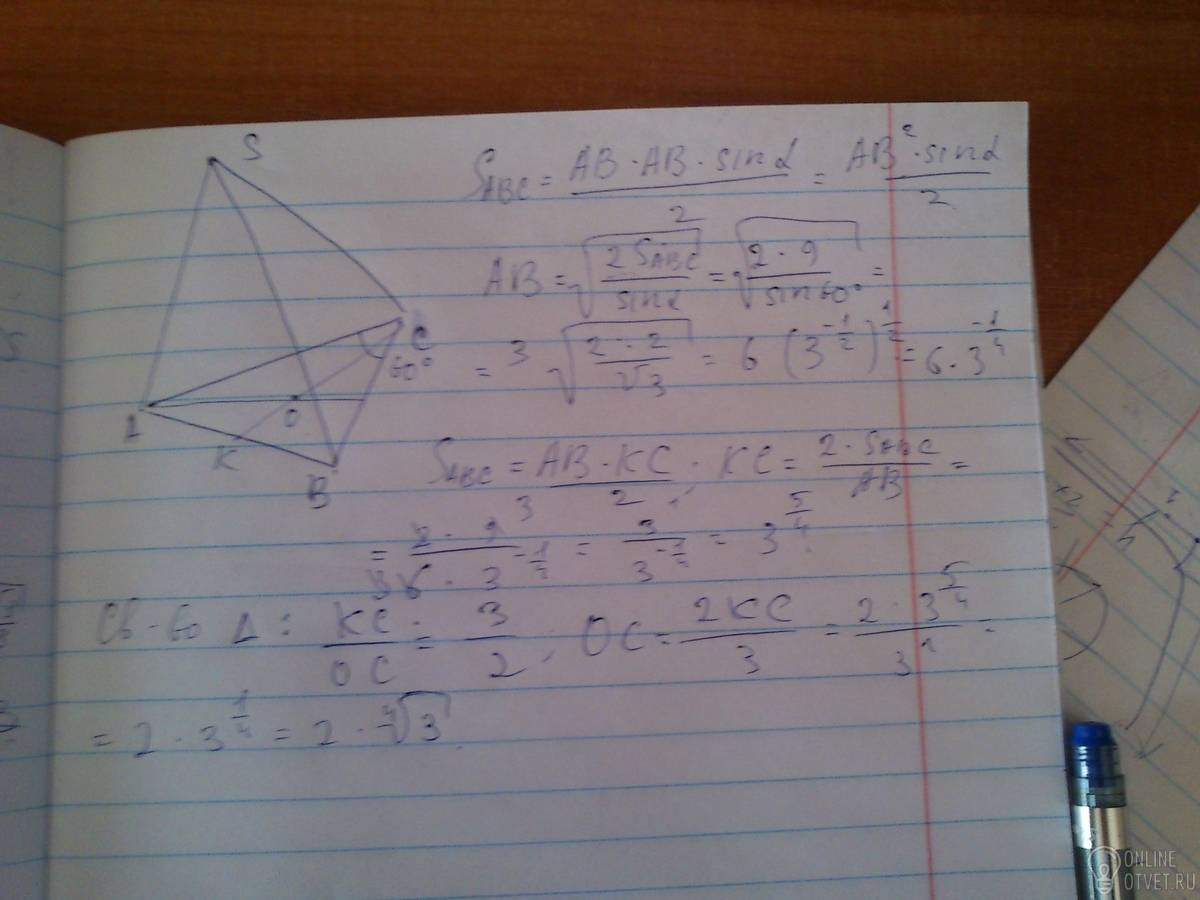 S
A
K
O
B
C
60°
S_ABC = (AB · AB · sinα)/2 = (AB² · sinα)/2
AB = √(2S_ABC/sinα) = √(2 · 9/sin60°) =
= 3√(2 · 2/√3) = 6(3^(-1/2))^(1/2) = 6 · 3^(-1/4)
S_ABC = (AB · KC)/2; KC = (2 · S_ABC)/AB =
= (2 · 9)/(6 · 3^(-1/4)) = 3/3^(-1/4) = 3^(5/4)
Св-во Δ: KC/OC = 3/2; OC = 2KC/3 = (2 · 3^(5/4))/3¹ =
= 2 · 3^(1/4) = 2 · ⁴√3.
ONLINE
OTVET.RU